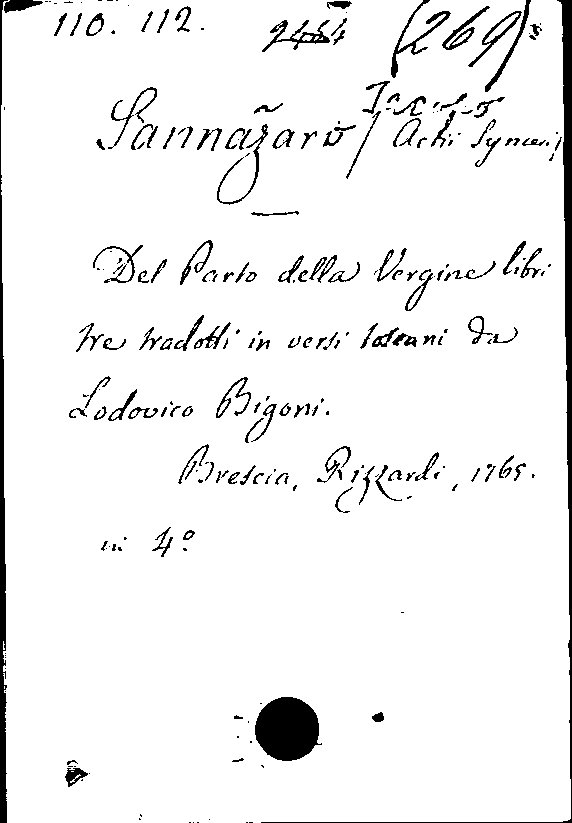 110. 112. (269)
Jacopo
Sannazaro / Actii Synceri /
Del Parto della Vergine libri
tre tradotti in versi toscani da
Lodovico Bigoni.
Brescia, Rizzardi, 1765.
in 4º